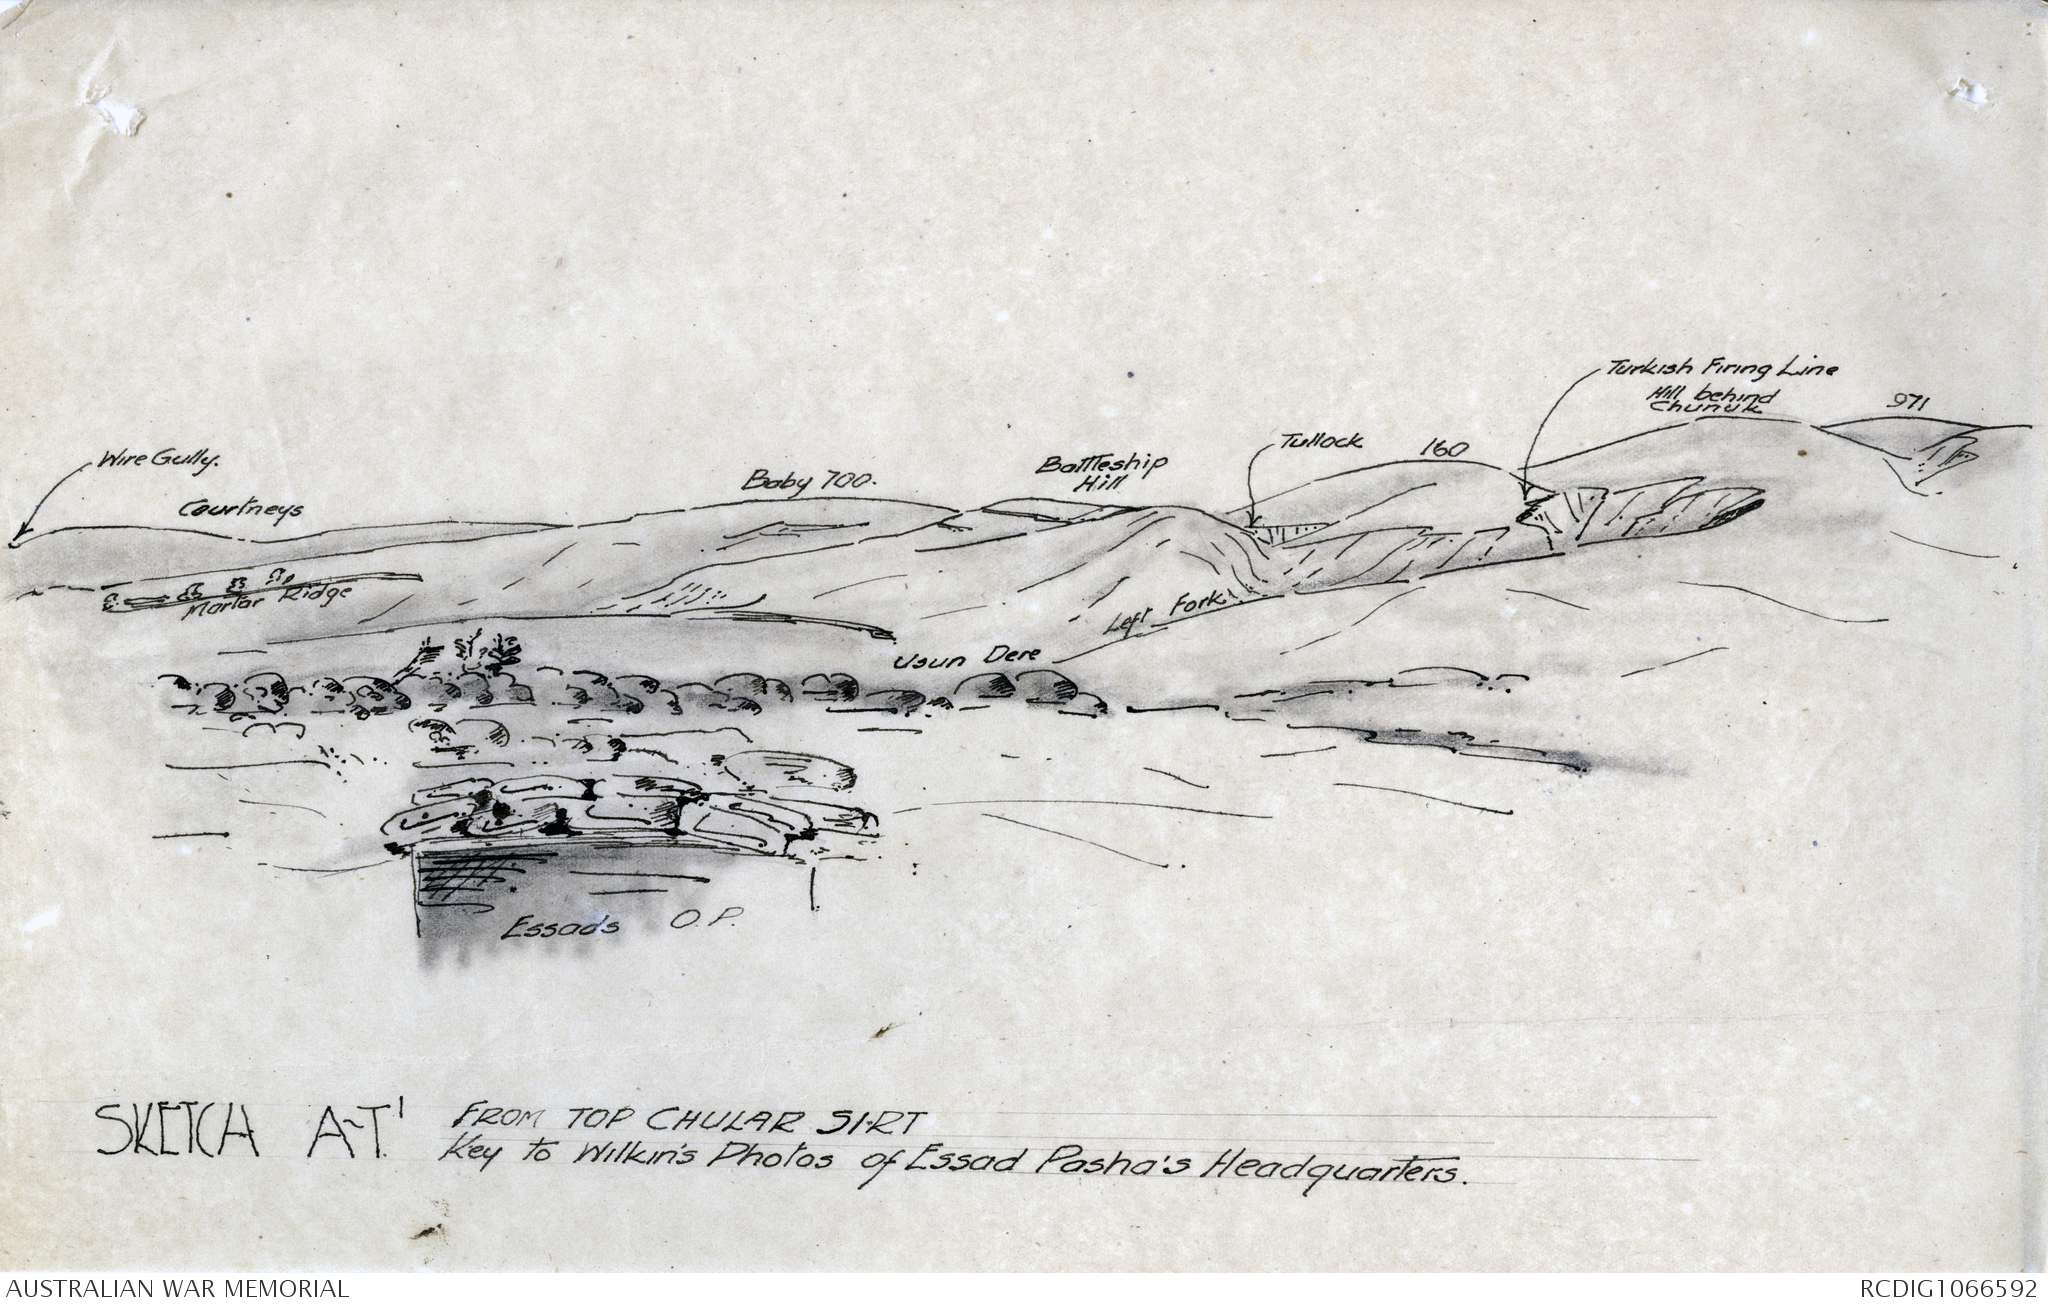 Turkish Firing Line
Hill behind
Chunuk
971
Wire Gully.
Courtneys
Baby 700.
Battleship
Hill
Tullock
160
Mortar Ridge
Left Fork
Usun Dere
Essad's O.P.
SKETCH A-T'
FROM TOP CHULAR SIRT
Key to Wilkin's Photos of Essad Pasha's Headquarters.
AUSTRALIAN WAR MEMORIAL
RCDIG1066592